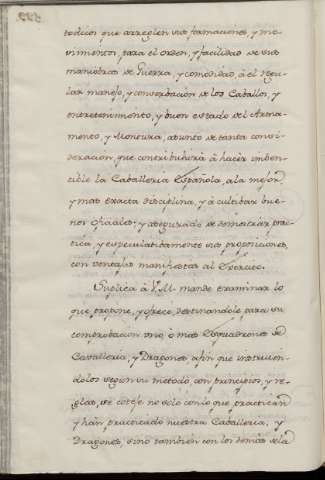 todicos que arreglen sus formaciones, y mo-
vimientos para el orden, y facilidad de sus
maniobras de Guerra, y comodidad, à el regu-
lar manejo, y conserbación de los Caballos, y
entretenimiento, y buen estado del Arma-
mento, y Montura, asunto de tanta consi-
deracion, que contribuhirà à hacer imben-
cible la Caballeria Española, a la mejor,
y mas exacta disciplina, y à cultibar bue-
nos oficiales: y asegurado de demostrar prac-
tica, y especulatibamente sus proposiciones,
con ventajas manifiestas al Exercito.
Suplica à V.M. mande examinar lo
que propone, y ofrece, destinandole para su
comprobacion uno, ó mas Esquadrones de
Cavalleria, y Dragones, afin que instruien-
dolos segun su metodo, con principios, y re-
glas, se coteje no solo con lo que practican
y han practicado nuestra Caballeria, y
Dragones, sino tambien con los demas de la